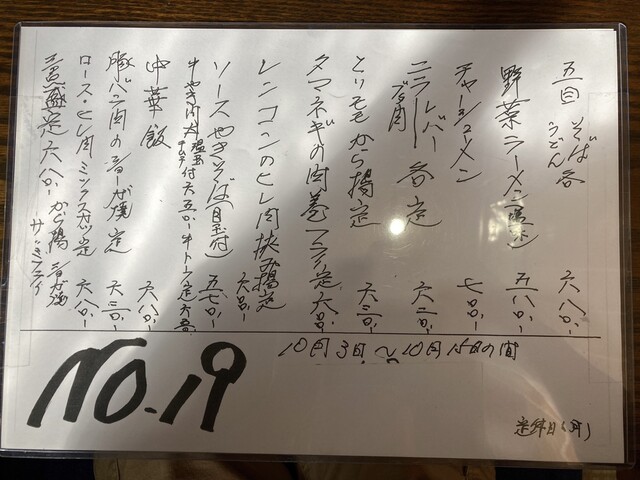 五目 そば うどん 各 六八〇、
野菜ラーメン 五八〇、
チャーシューメン 七〇〇、
ニラレバー 豚肉 各定 六二〇、
とりもも から揚定 六三〇、
タマネギの肉巻フライ定 六八〇、
レンコンのヒレ肉挟み揚定 六八〇、
ソースやきそば（目玉付） 五七〇、
牛やき肉丼 付 六五〇、牛トロ定
中華飯 六八〇、
豚バラ肉のショーガ焼定 六三〇、
ロース・ヒレ肉ミックスカツ定 六八〇、
定 六八〇、から揚
10月3日、〜10月15日の間
NO.19
定休日（月）